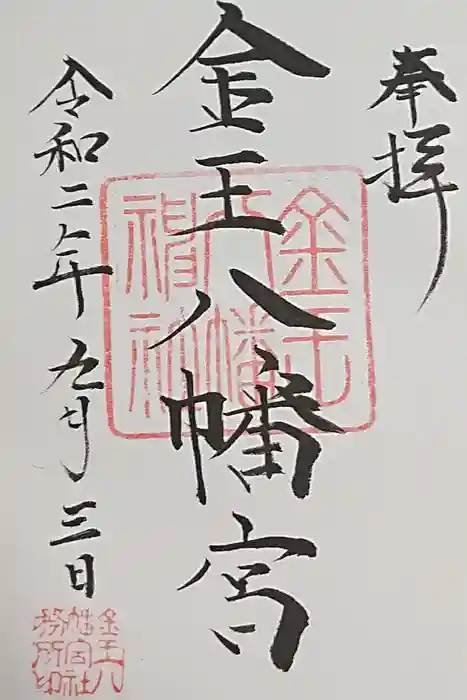 奉拝
金王八幡宮
令和二年九月三日
金王
八幡
神社
金王八
幡宮社
務所印